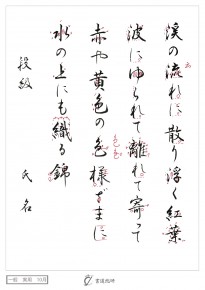 溪の流れに散り浮く紅葉
波にゆられて離れて寄って
赤や黄色の色様ざまに
水の上にも織る錦
段級 氏名
一般 実用 10月
書道教師